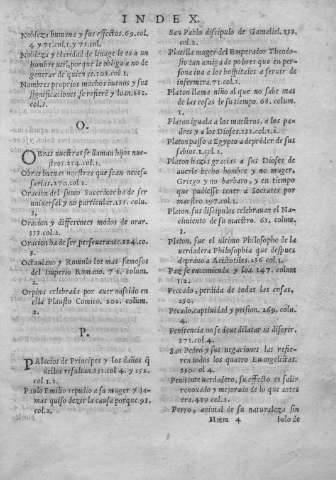 INDEX.
Nobleza humana y sus effectos. 69. col.
4. y 71. col. 1. y 75. col.
Nobleza y claridad de linage le es a un
hombre vil, porque le obliga a no de
generar de quien es. 101. col. 1.
Nombres proprios muchos buenos y sus
significaciones, se refiere
col. 2.
O.
OBras nuestras se llaman hijos nue-
stros. 214. col. 1.
Obras buenas nuestras que sean neces-
sarias. 170. col. 1.
Oracion del sumo Sacerdote ha de ser
universal y no particular. 131. colu.
2.
Oracion y differentes modos de orar.
col. 2.
Oracion ha de ser perseverante. 224. co.
3.
Octaviano y Romulo los mas famosos
del Imperio Romano. 7 1. column.
2.
Orpine celebrada por aver nascido en
ella Plausto Comico. 202. column.
2.
P.
PAlacios de Principes y los daños q̃
dellos resultan. 251. col. 4. y 252.
col. 1. 2.
Paulo Emilio repudio a su muger y ja-
mas quiso dezir la causa porque. 92.
col. 2.
San Pablo discipulo de Gamaliel. 132.
col. 2.
Placilla muger del Emperador Theodo-
sio tan amiga de pobres que en per-
sona iva a los hospitales a servir de
infermera. 71. col. 2.
Platon llama niño al que no sabe mas
de las cosas de su tiempo. 68. column.
1.
Platon iguala a los maestros, a los pa-
dres y a los Dioses. 151. col. 1. 2.
Platon passo a Egypto a deprēder de sus
sabios. 1. col. 2.
Platon hazia gracias a sus Dioses de
averle hecho hombre y no muger,
Griego y no barbaro, y en tiempo
que pudiesse tener a Socrates por
maestro. 197. col. 1.
Platon, sus discipulos celebravan el Na-
cimiento de su maestro. 62. column.
2.
Platon, fue el ultimo Philosopho de la
verdadera Philosophia que despues
depravo a Aristotiles. 226. col. 1.
Paz se encomienda y loa. 147. column.
1. 2.
Peccado, perdida de todas las cosas,
250.
Pecado, captividad y prision. 269. colu.
4.
Penitencia no se deve dilatar ni diferir.
271. col. 4.
San Pedro y sus negaciones las refie-
ren todos los quatro Evangelistas.
250. col. 4.
Penitente verdadero, su effecto es salir
renovado y mejorado de lo que antes
era. 429. col. 2.
Perro, animal de su naturaleza sin
Mmm 4 bolo de